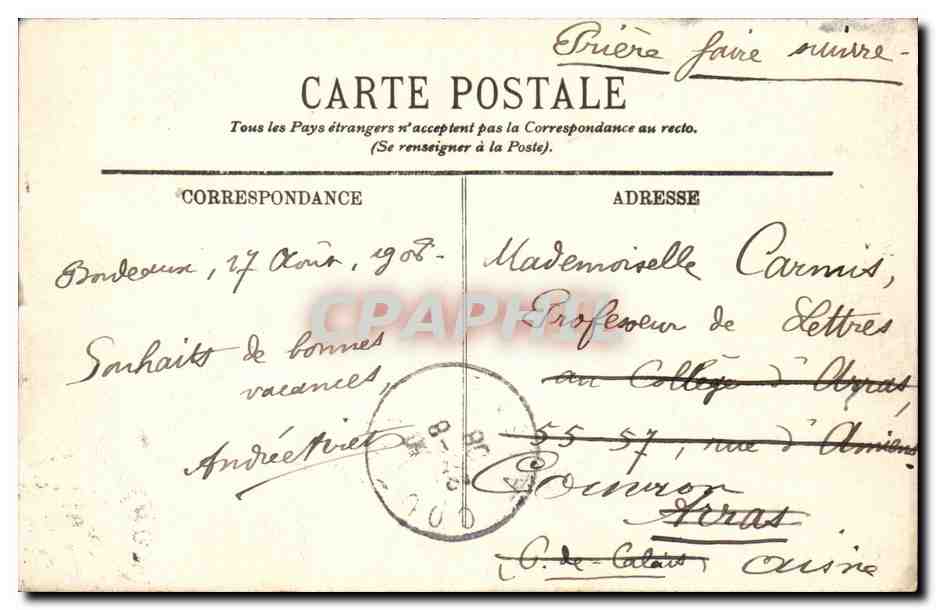 Prière faire suivre -
CARTE POSTALE
Tous les Pays étrangers n'acceptent pas la Correspondance au recto.
(Se renseigner à la Poste).
CORRESPONDANCE
Bordeaux, 17 Août, 1908 -
Souhaits de bonnes
vacances,
Andrée
ADRESSE
Mademoiselle Carmis,
Professeur de Lettres
au Collège d'Arras,
55 57, rue d'Amiens
Couvron
Arras
(P.-de-Calais) Aisne
CPAPHIL